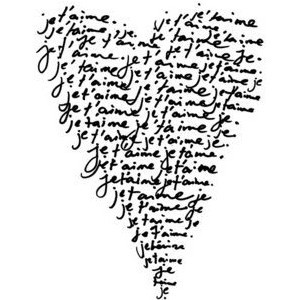 je t'aime. je t'aime
je t'aime. je. je t'aime. je
je t'je t'aime. je t'aime. je
je t'aime. je t'aime. je t'aime.
je t'aime. je t'aime. je t'aime je
je t'aime. je t'aime. je t'aime
je t'aime je t'aime. je t'aime.
je t'aime. je t'aime. je
je taime je t'aime. je t'aime
je t'aime. je t'aime. je.
je t'aime je t'aime.
je t'aime. je t'aime
je t'aime je t'aime.
je t'aime je
je t'aime. je
je t'aime
je t'aime.
je t'aime
je t'aime
je
t'aime
je